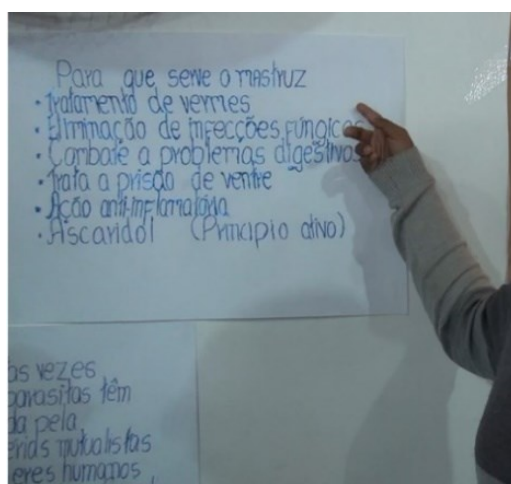 Para que serve o mastruz
• Tratamento de vermes
• Eliminação de infecções fúngicas
• Combate a problemas digestivos
• Trata a prisão de ventre
• Ação anti-inflamatória
• Ascaridol (Principio ativo)
as vezes
parasitas têm
da pela
érias mutualistas
eres humanos,